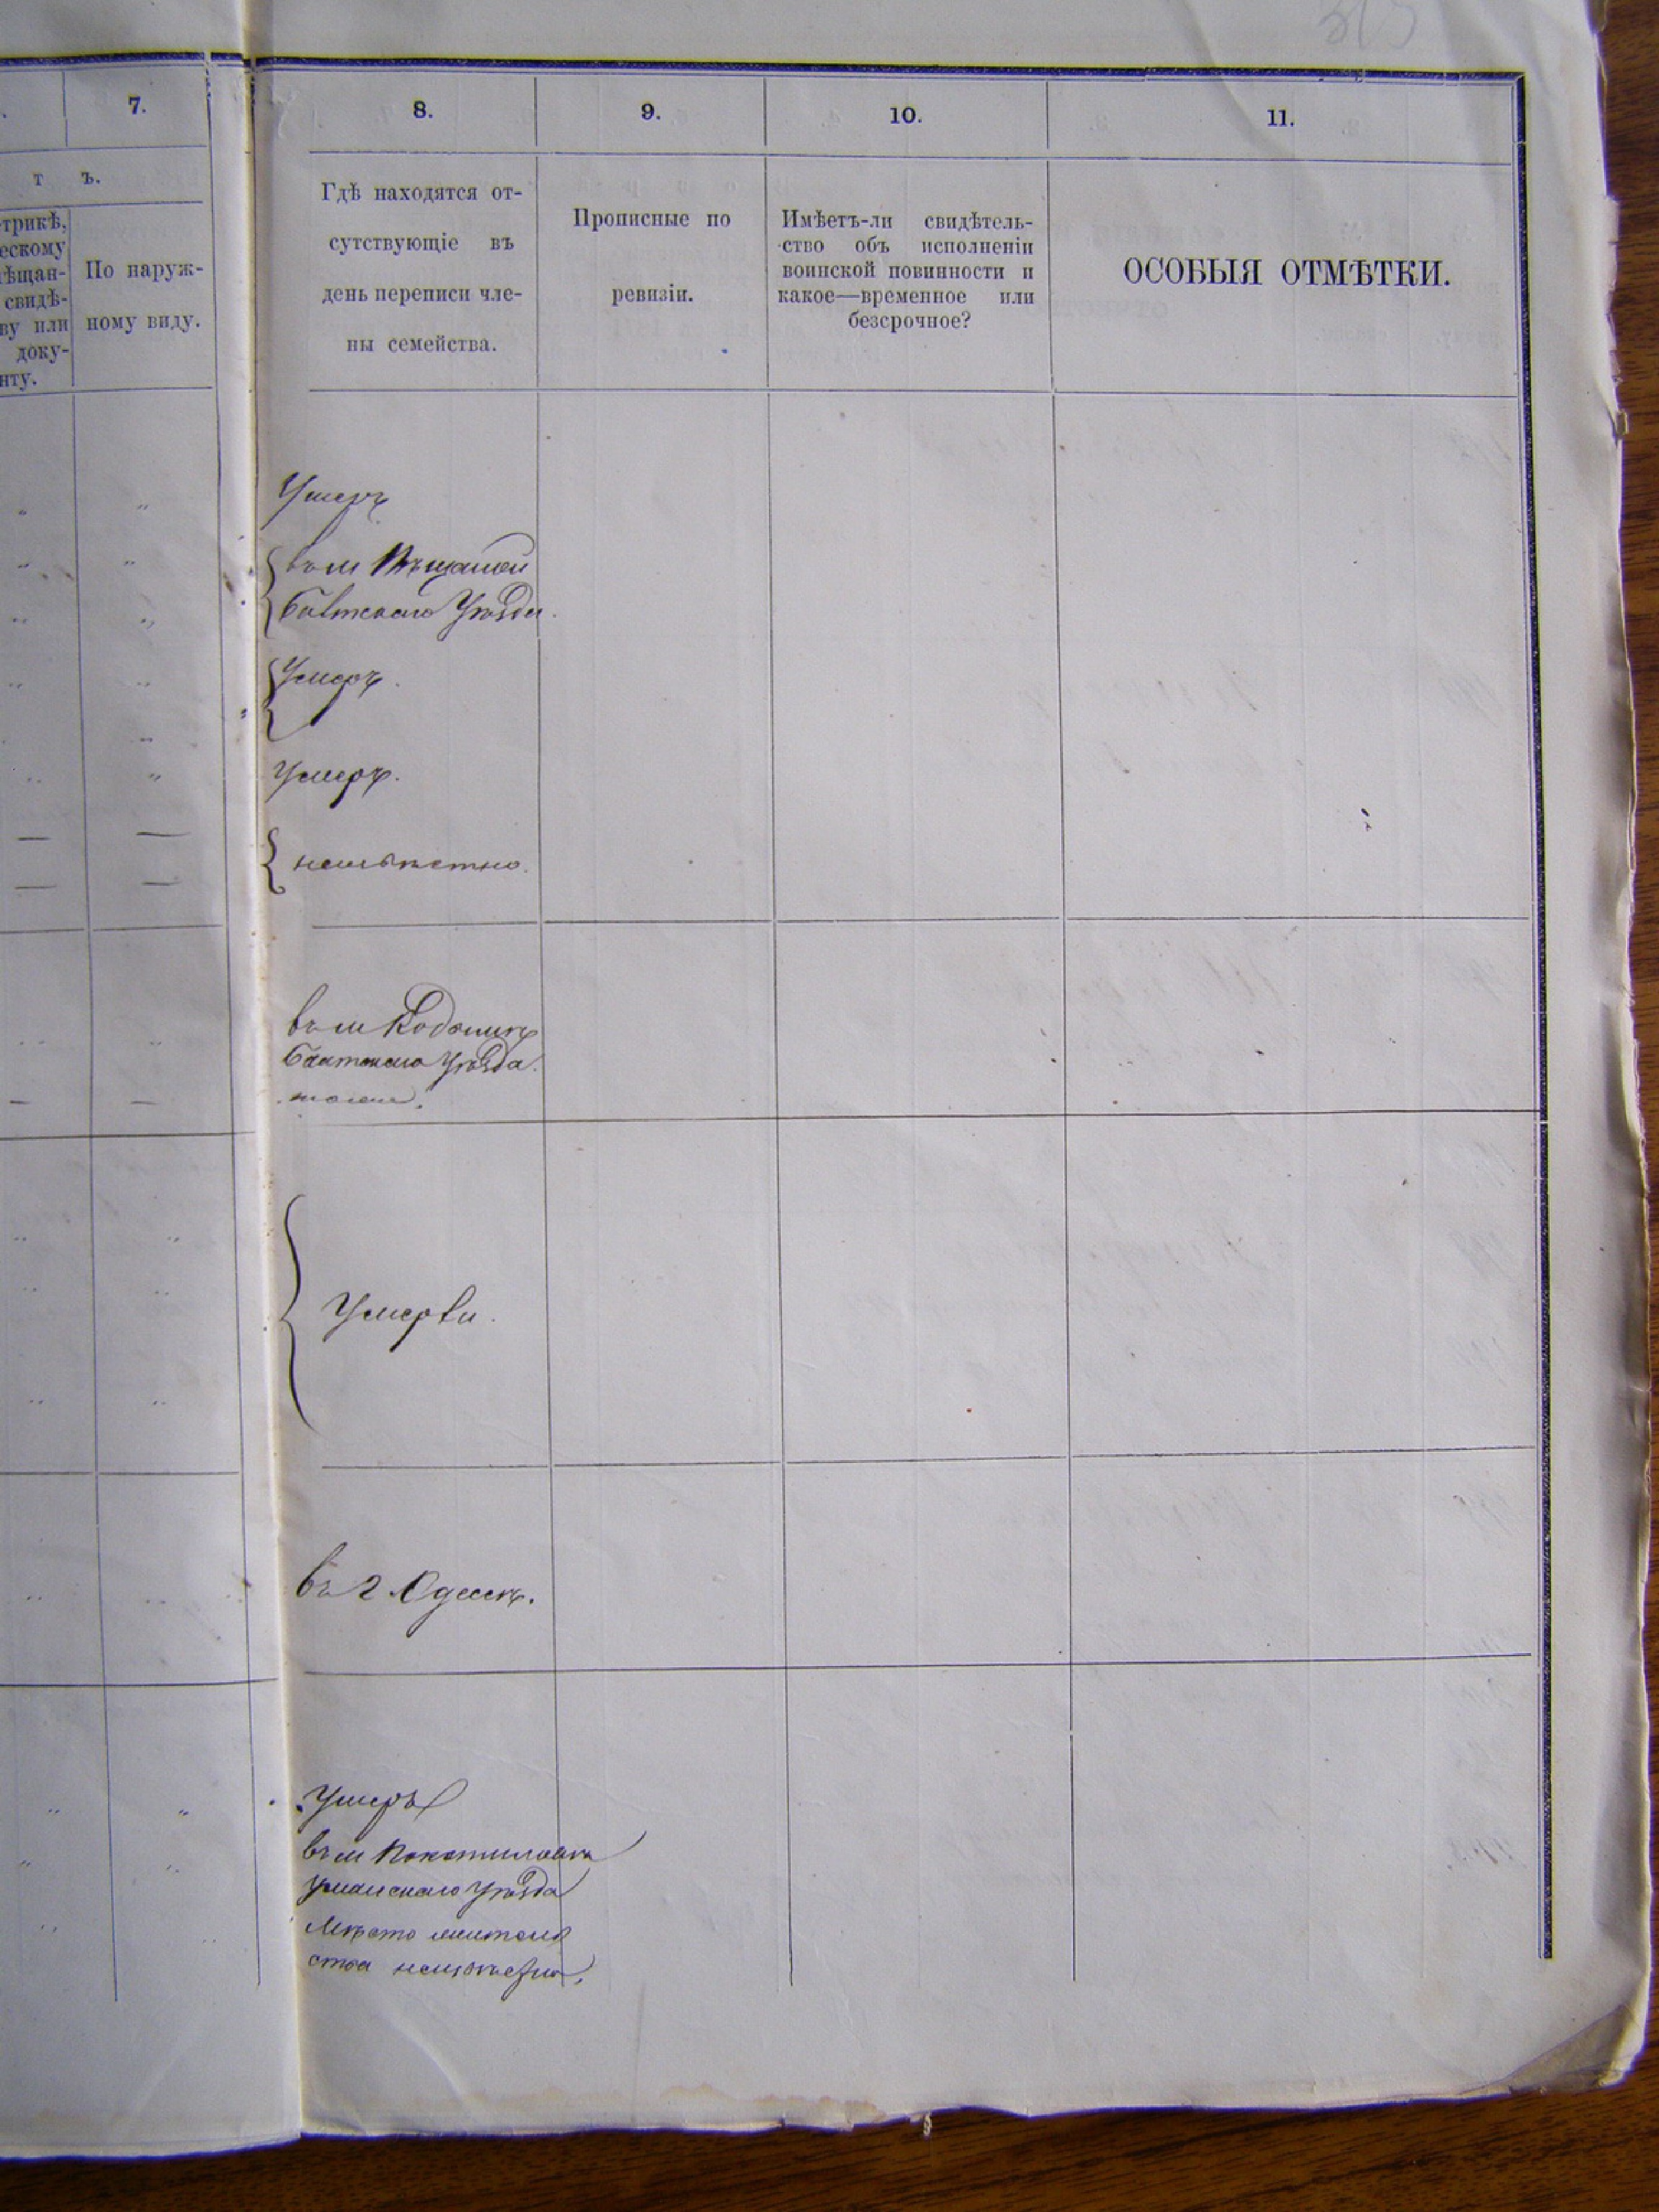 315
7.
8.
9.
10.
11.
т ъ.
трикѣ,
ескому
ѣщан-
свидѣ-
ву или
доку-
нту.
По наруж-
ному виду.
Гдѣ находятся от-
сутствующіе въ
день переписи чле-
ны семейства.
Прописные по
ревизіи.
Имѣетъ-ли свидѣтель-
ство объ исполненіи
воинской повинности и
какое—временное или
безсрочное?
ОСОБЫЯ ОТМѢТКИ.
Умеръ
въ м
Балтскаго Уѣзда.
Умеръ.
Умеръ.
неизвѣстно.
въ м
Балтскаго Уѣзда.
тоже.
Умерли.
въ г. Одессѣ.
Умеръ
въ м Покотиловкѣ
Уманскаго Уѣзда
Мѣсто житель
ства неизвѣстно.